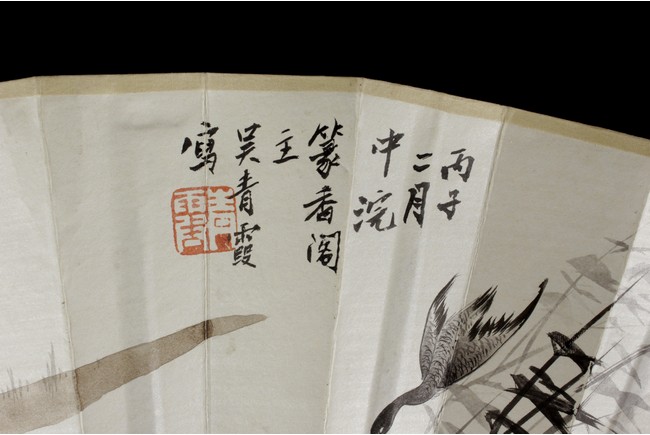 丙子
二月
中浣
篆香阁
主
吴青霞
写
青霞